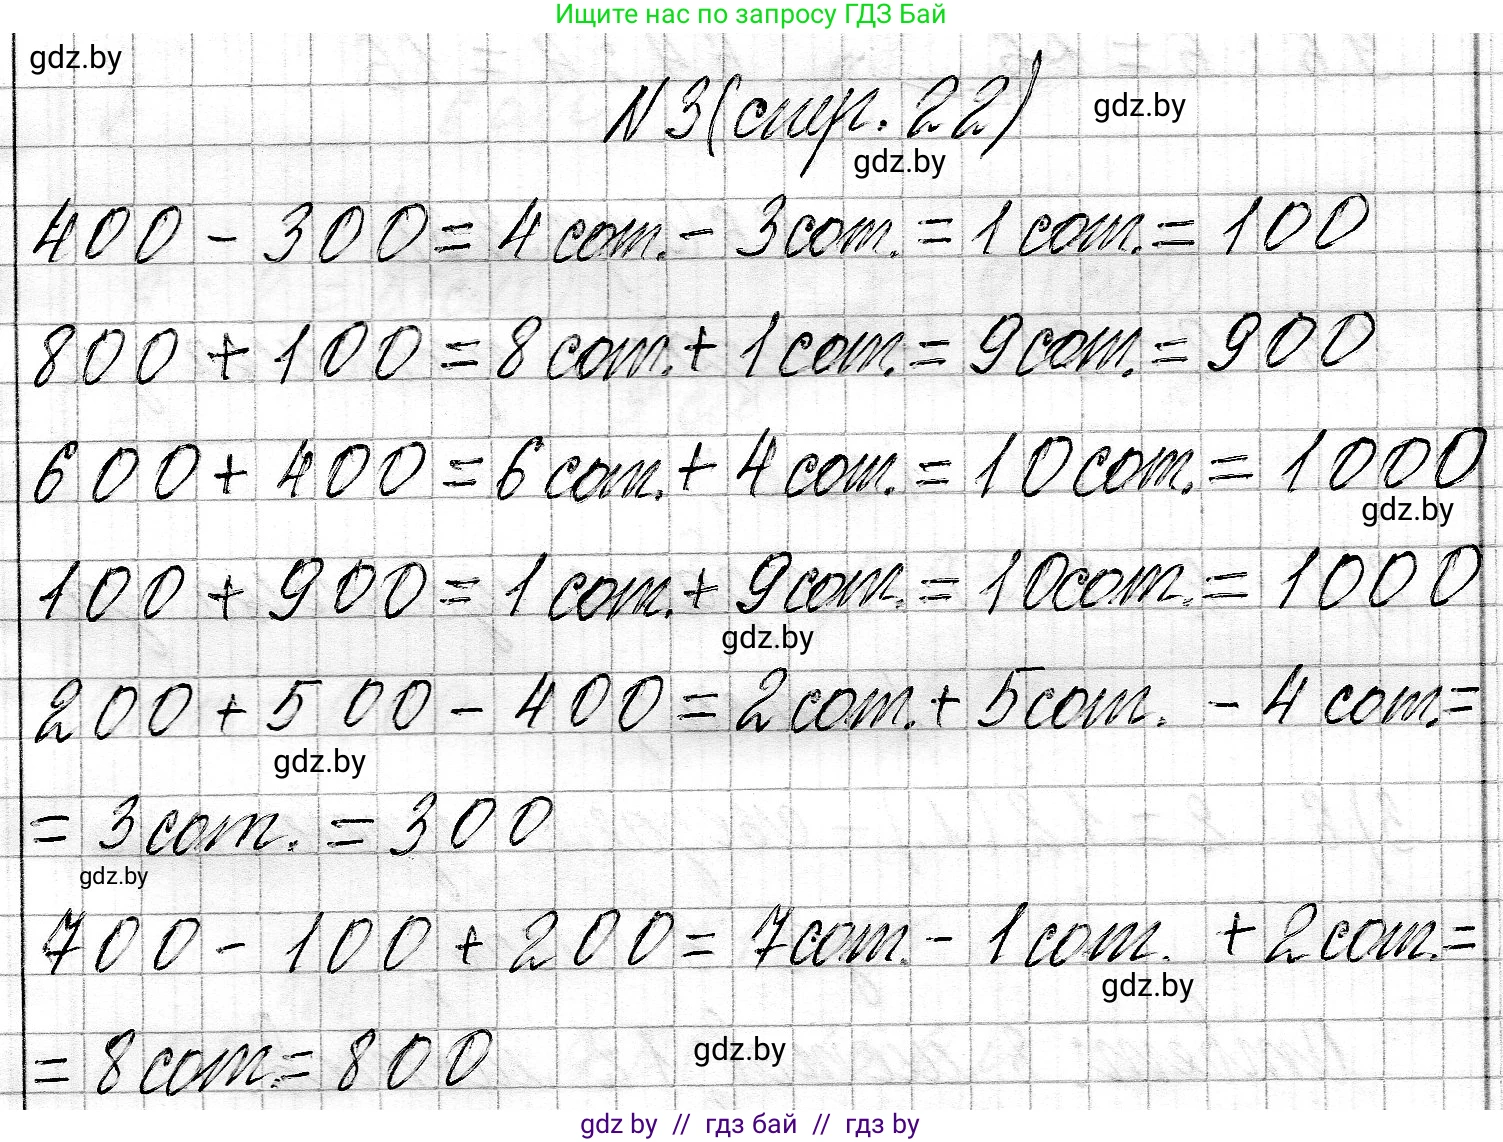 Ищите нас по запросу ГДЗ Бай
gdz.by
N3(стр. 22)
gdz.by
gdz.by
400 - 300 = 4 сот. - 3 сот. = 1 сот. = 100
800 + 100 = 8 сот. + 1 сот. = 9 сот. = 900
600 + 400 = 6 сот. + 4 сот. = 10 сот. = 1000
gdz.by
100 + 900 = 1 сот. + 9 сот. = 10 сот. = 1000
gdz.by
200 + 500 - 400 = 2 сот. + 5 сот. - 4 сот. =
gdz.by
= 3 сот. = 300
gdz.by
700 - 100 + 200 = 7 сот. - 1 сот. + 2 сот. =
gdz.by
= 8 сот. = 800
gdz.by
gdz by // гдз бай // гдз by